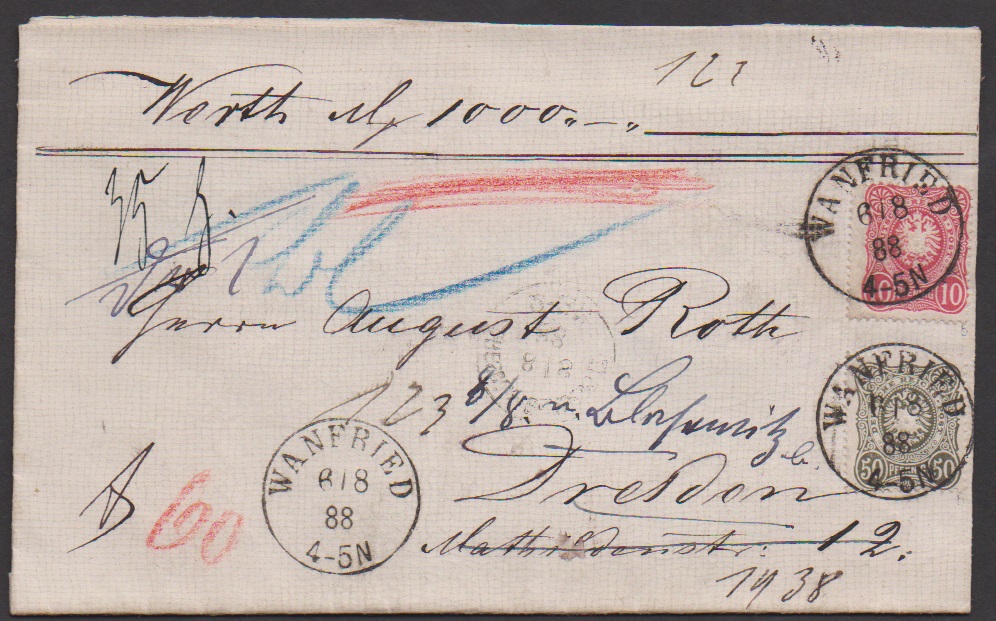 122
Werth M 1000.-.
35 g.
Herrn August Roth
123 8/8. n. Blasewitz b.
Dresden
Mathildenstr. 12.
1938
60
WANFRIED
6/8
88
4-5N
WANFRIED
6/8
88
4-5N
10 10
WANFRIED
6/8
88
4-5N
50 50